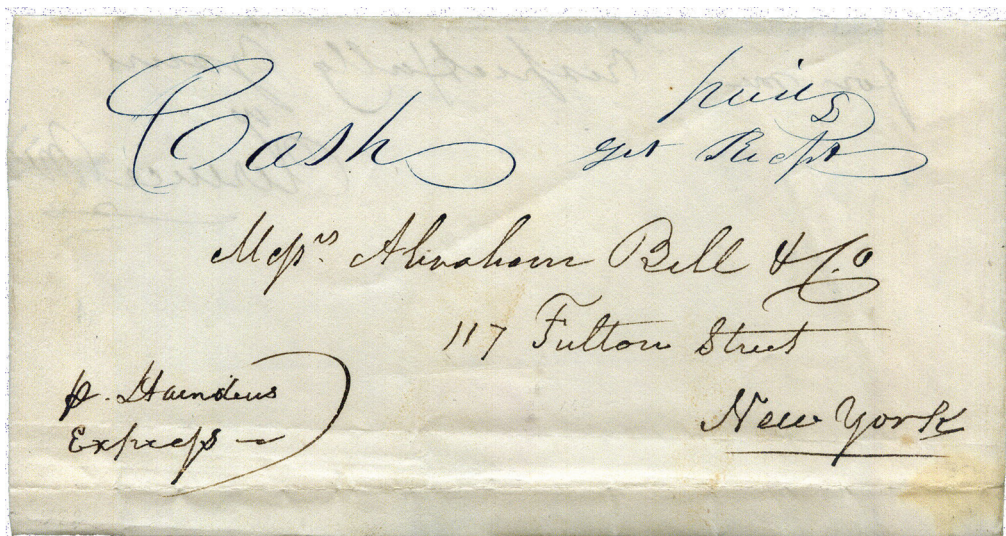 Cash
get Recpt
Messrs. Abraham Bell & Co
117 Fulton Street
New York
p. Harndens
Express